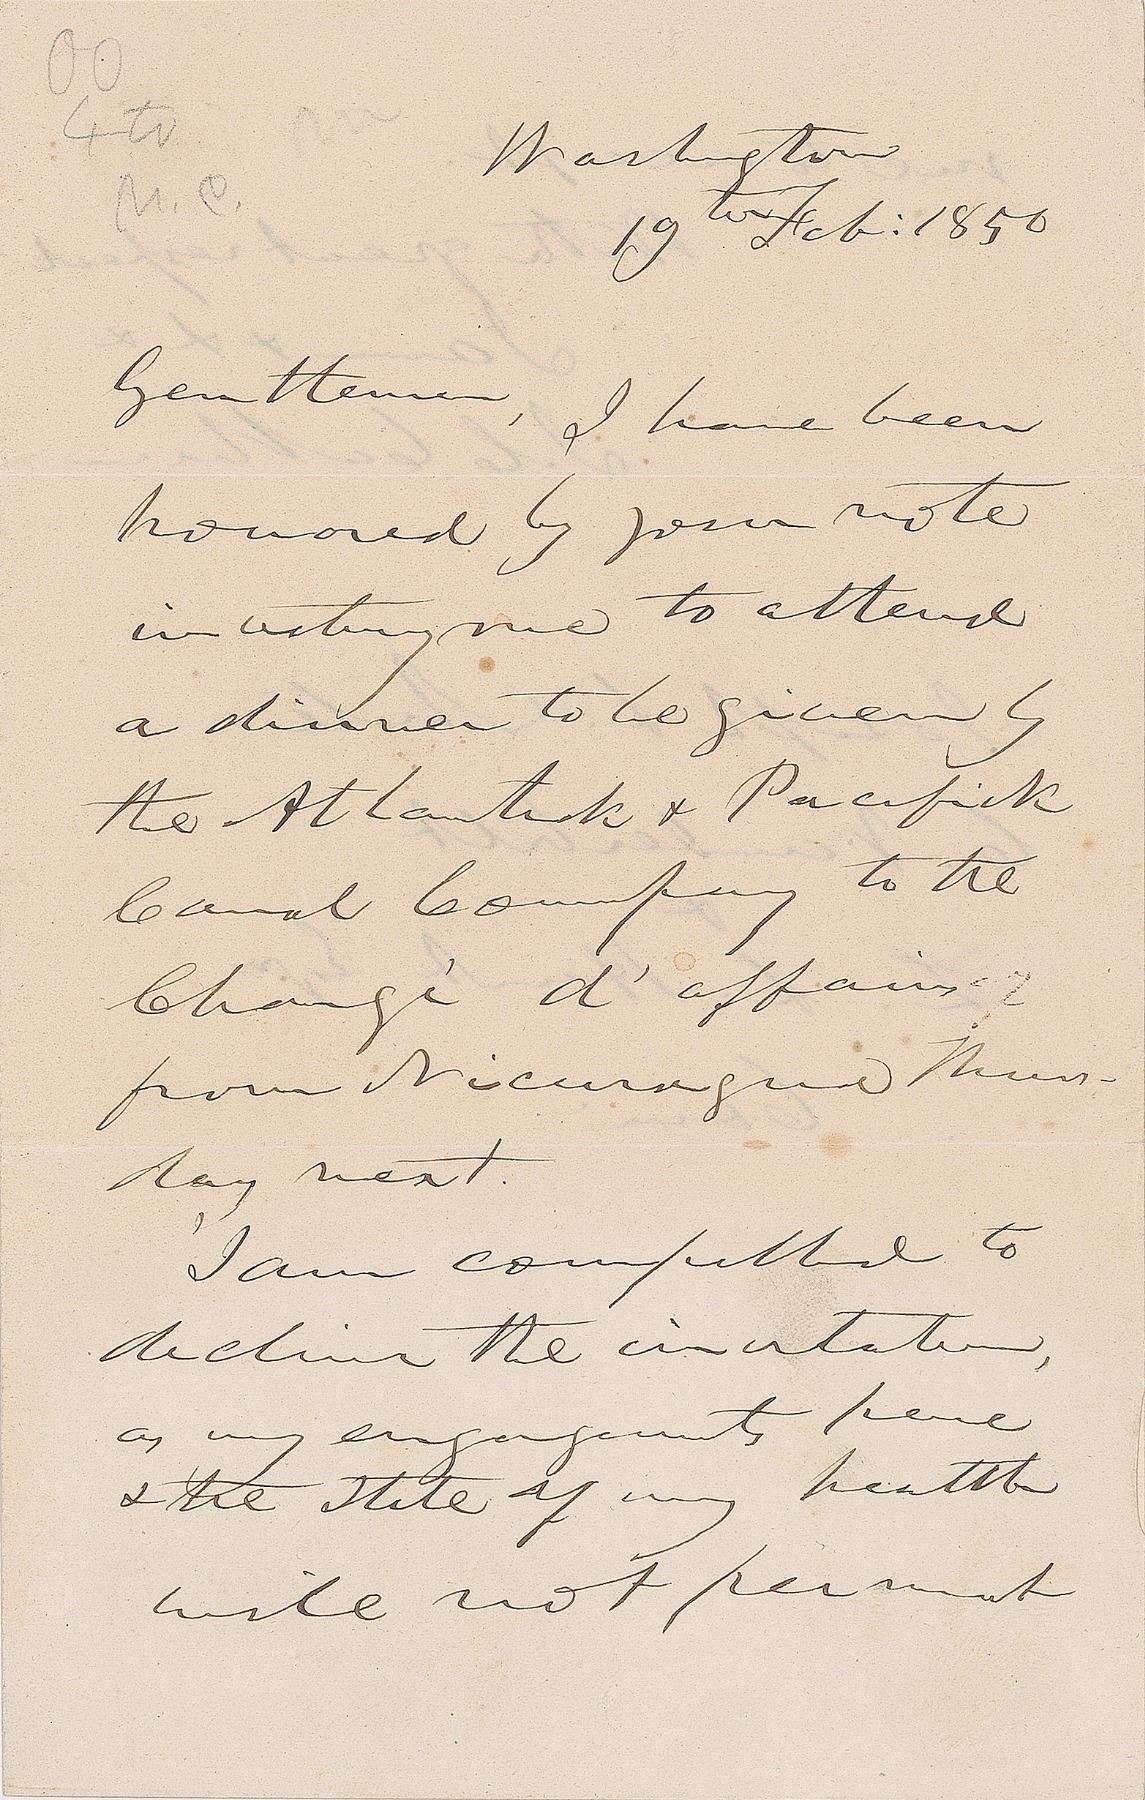 00
4to
N. C.
Washington
19th Feb: 1850
Gentlemen, I have been
honored by your note
inviting me to attend
a dinner to be given by
the Atlantick & Pacifick
Canal Company to the
Chargé d' affaires
from Nicaragua Thurs-
day next.
I am compelled to
decline the invitation,
as my engagements here
& the state of my health
will not permit